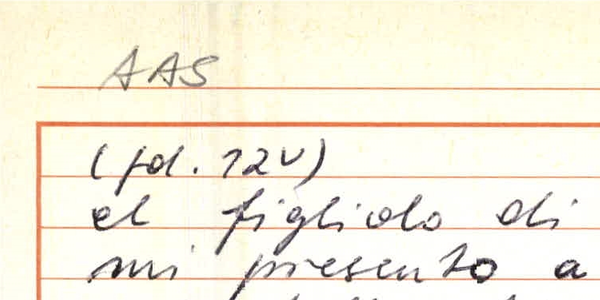 AAS
(fol. 12v)
el figliolo di
mi presento a